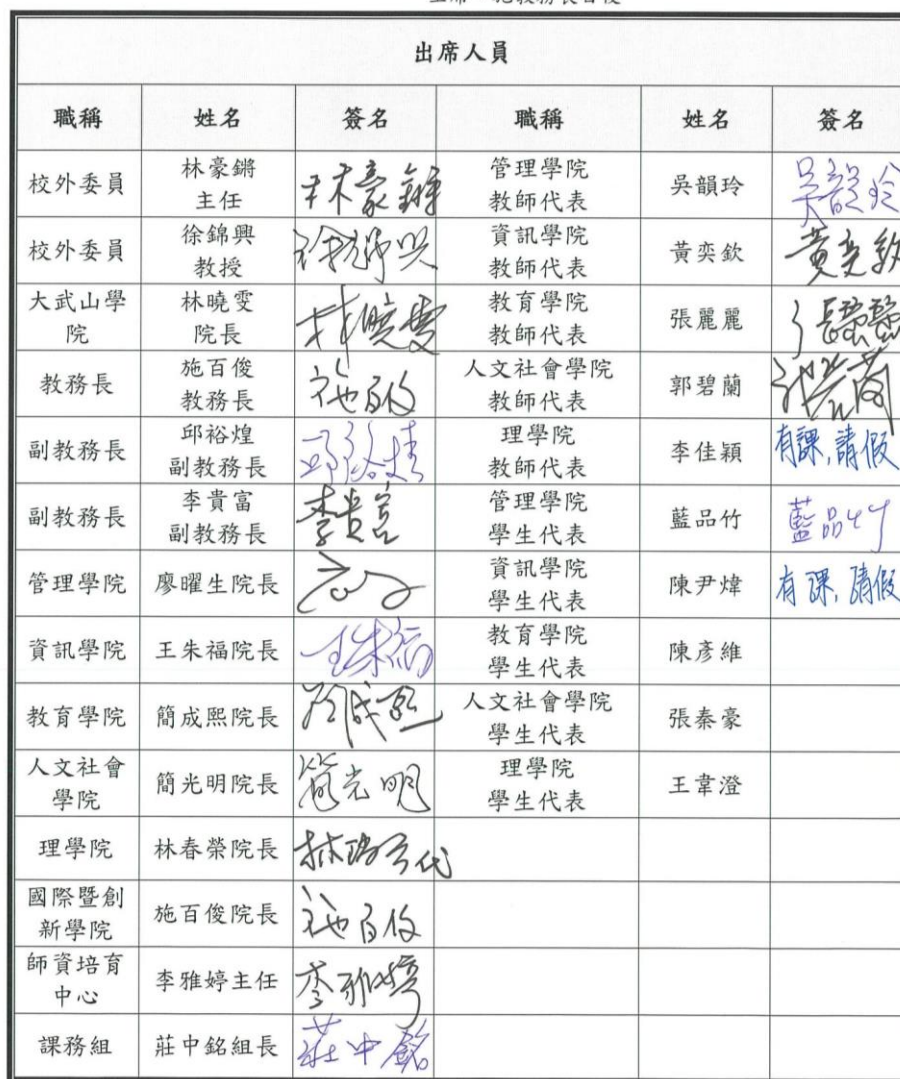 出席人員
職稱 姓名 簽名 職稱 姓名 簽名
校外委員 林豪鏘 主任 林豪鏘 管理學院 教師代表 吳韻玲 吳韻玲
校外委員 徐錦興 教授 徐錦興 資訊學院 教師代表 黃奕欽 黃奕欽
大武山學院 林曉雯 院長 林曉雯 教育學院 教師代表 張麗麗 張麗麗
教務長 施百俊 教務長 施百俊 人文社會學院 教師代表 郭碧蘭
副教務長 邱裕煌 副教務長 邱裕煌 理學院 教師代表 李佳穎 有課,請假
副教務長 李貴富 副教務長 李貴富 管理學院 學生代表 藍品竹 藍品竹
管理學院 廖曜生院長 資訊學院 學生代表 陳尹煒 有課,請假
資訊學院 王朱福院長 王朱福 教育學院 學生代表 陳彥維
教育學院 簡成熙院長 簡成熙 人文社會學院 學生代表 張秦豪
人文社會學院 簡光明院長 簡光明 理學院 學生代表 王韋澄
理學院 林春榮院長
國際暨創新學院 施百俊院長 施百俊
師資培育中心 李雅婷主任 李雅婷
課務組 莊中銘組長 莊中銘